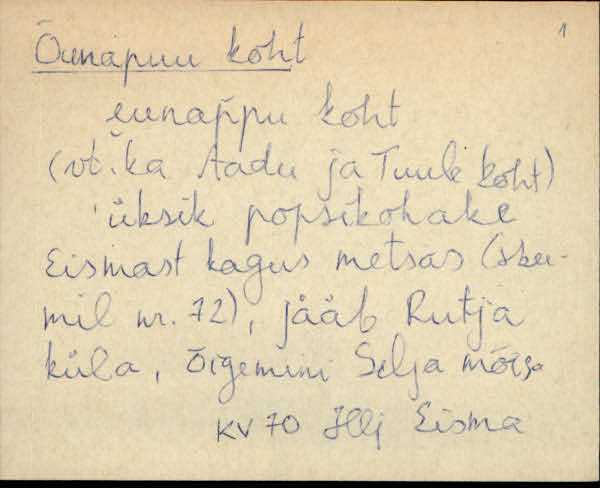 1
Õunapuu koht
eunappu koht
(vt. ka Aadu ja Tuule koht)
üksik popsikohake
Eismast kagus metsas (skee-
mil nr. 72), jääb Rutja
küla, õigemini Selja mõisa
KV 70 Hlj Eisma